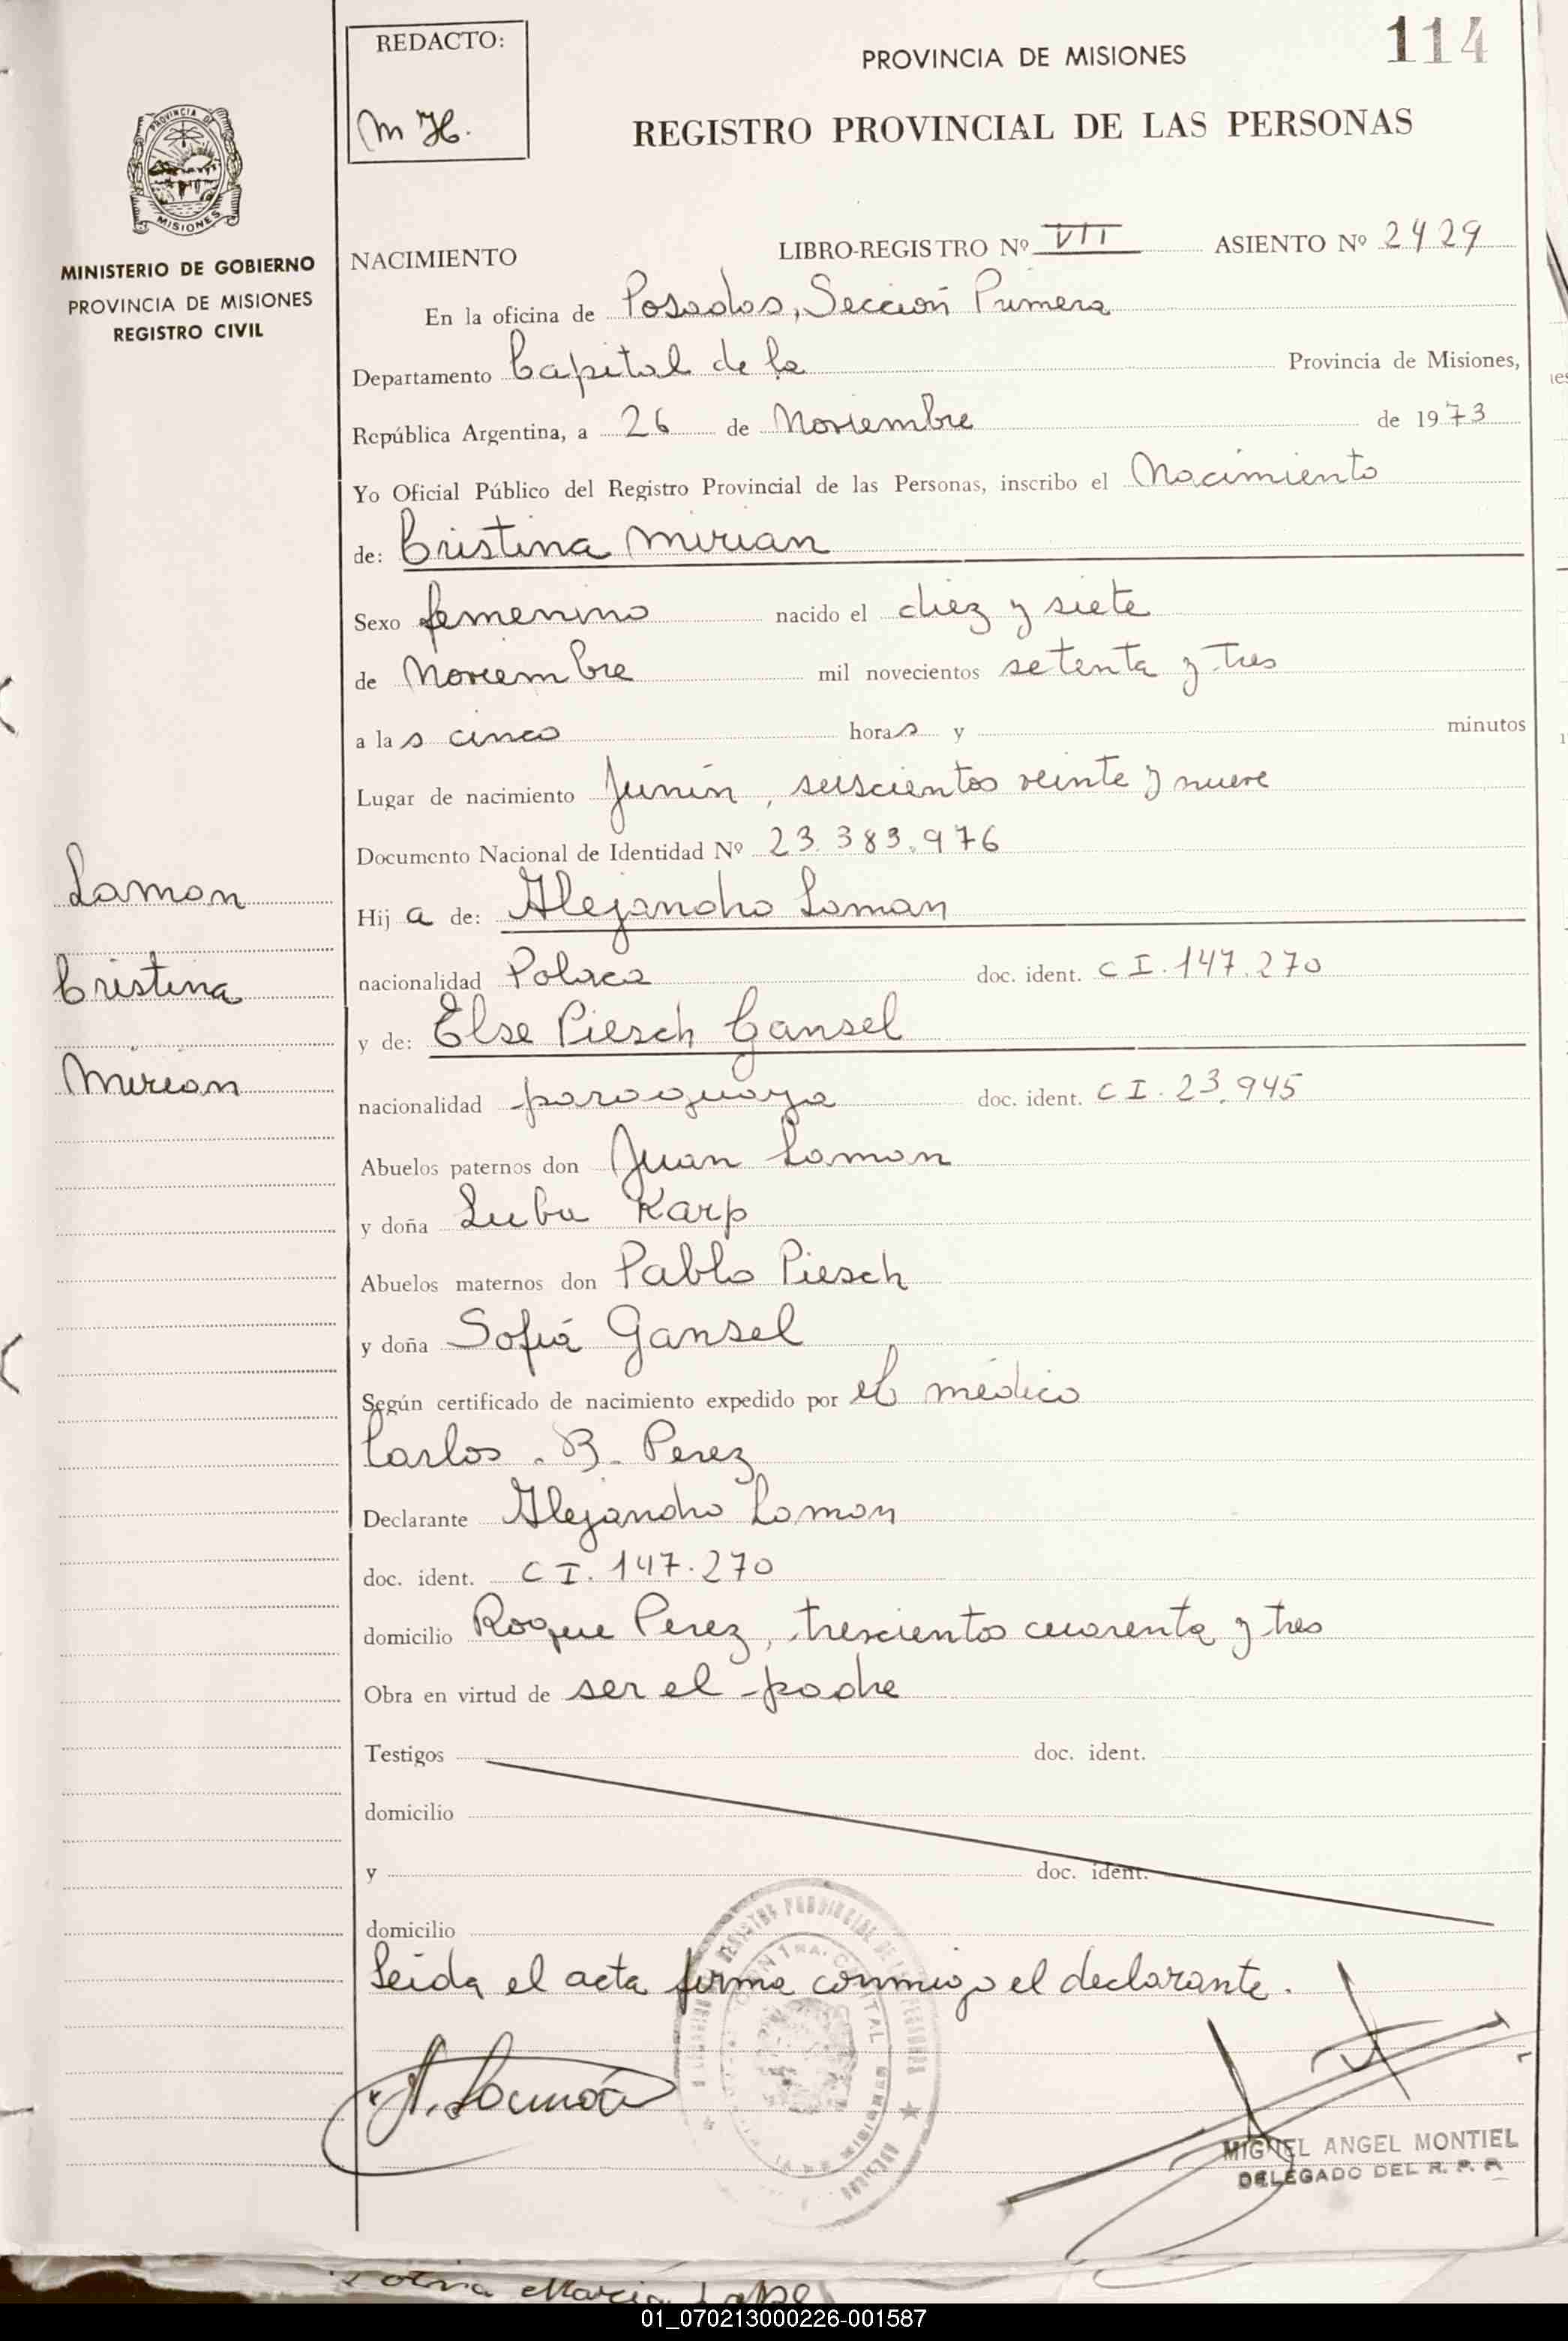 114
REDACTO:
M H.
PROVINCIA DE MISIONES
REGISTRO PROVINCIAL DE LAS PERSONAS
PROVINCIA DE
MISIONES
MINISTERIO DE GOBIERNO
PROVINCIA DE MISIONES
REGISTRO CIVIL
NACIMIENTO LIBRO-REGISTRO Nº VII ASIENTO Nº 2429
En la oficina de Posadas, Sección Primera
Departamento Capital de la Provincia de Misiones,
República Argentina, a 26 de Noviembre de 1973
Yo Oficial Público del Registro Provincial de las Personas, inscribo el Nacimiento
de: Cristina Mirian
Sexo femenino nacido el diez y siete
de Noviembre mil novecientos setenta y tres
a las cinco horas y minutos
Lugar de nacimiento Junín, seiscientos veinte y nueve
Documento Nacional de Identidad Nº 23.383.976
Laman
Hija de: Alejandro Laman
Cristina
nacionalidad Polaca doc. ident. C I. 147.270
y de: Else Piesch Gansel
Mirian
nacionalidad paraguaya doc. ident. C I. 23.945
Abuelos paternos don Juan Laman
y doña Luba Karp
Abuelos maternos don Pablo Piesch
y doña Sofía Gansel
Según certificado de nacimiento expedido por el médico
Carlos. B. Perez
Declarante Alejandro Laman
doc. ident. C I. 147.270
domicilio Roque Perez, trescientos cuarenta y tres
Obra en virtud de ser el padre
Testigos doc. ident.
domicilio
y doc. ident.
domicilio
Leida el acta firma conmigo el declarante.
MIGUEL ANGEL MONTIEL
DELEGADO DEL R. P. P.
01_070213000226-001587